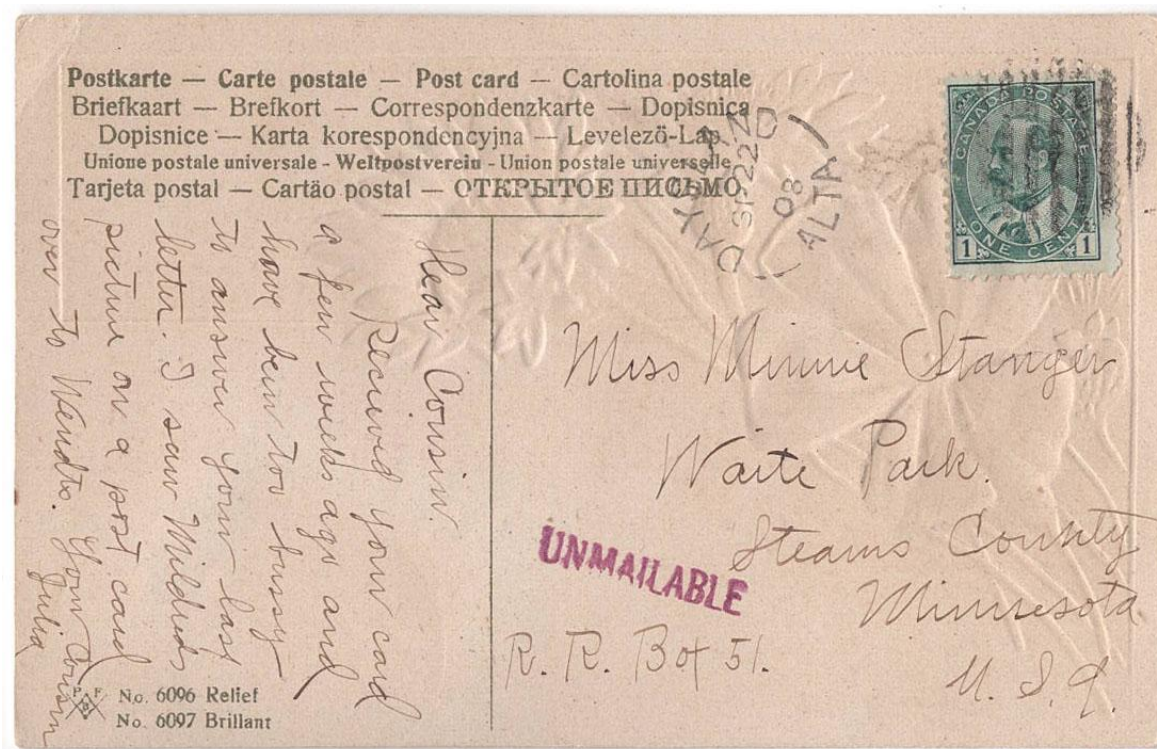 Postkarte — Carte postale — Post card — Cartolina postale
Briefkaart — Brefkort — Correspondenzkarte — Dopisnica
Dopisnice — Karta korespondencyjna — Levelezö-Lap
Unione postale universale - Weltpostverein - Union postale universelle
Tarjeta postal — Cartão postal — ОТКРЫТОЕ ПИСЬМО.
DAYSLAND
SP 22
08
ALTA
CANADA POSTAGE
1 ONE CENT 1
Dear Cousin.
Recieved your card
a few weeks ago and
have been too bussy
to answer your last
letter. I saw Mildreds
picture on a post card
over to Wendts. Your Cousin
Julia
Miss Minnie Stanger
Waite Park.
Stearns County
Minnesota
R. R. Box 51.
U. S. A.
UNMAILABLE
P F B
No. 6096 Relief
No. 6097 Brillant